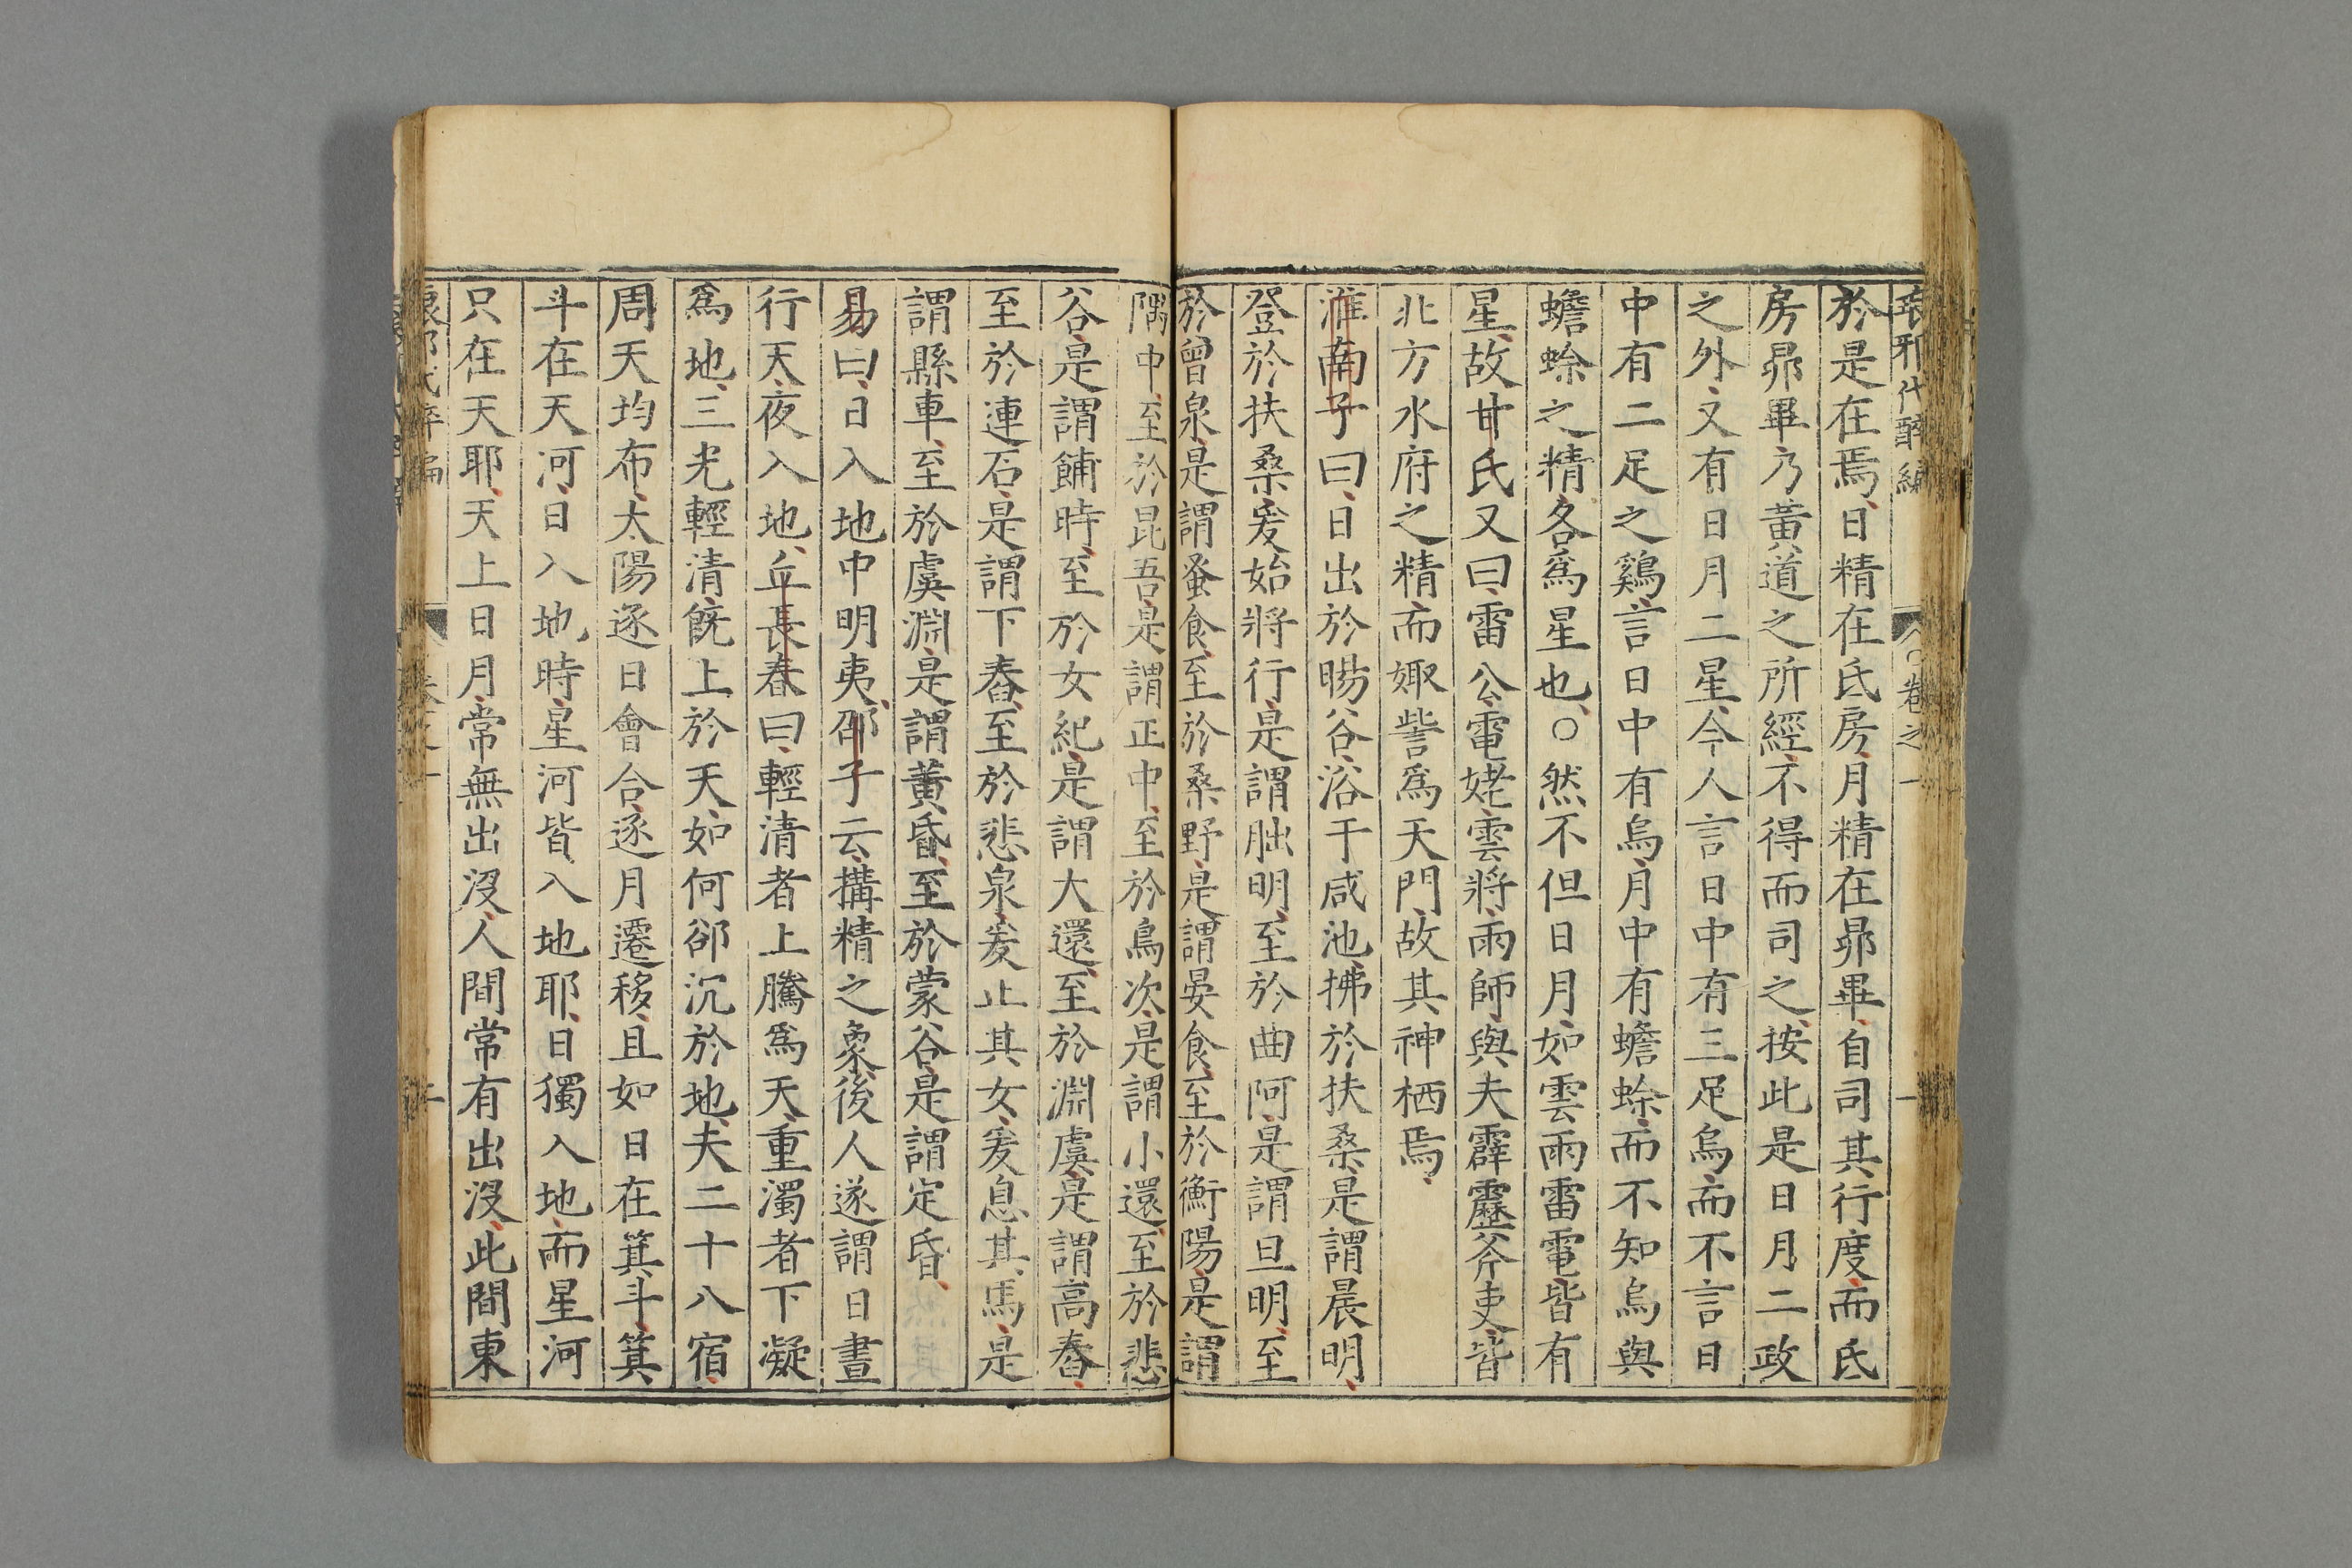 琅邪代醉編 卷之一 一
於是在焉日精在氐房月精在昴畢自司其行度而氐
房昴畢乃黃道之所經不得而司之按此是日月二政
之外又有日月二星今人言日中有三足烏而不言日
中有二足之鷄言日中有烏月中有蟾蜍而不知烏與
蟾蜍之精各爲星也○然不但日月如雲雨雷電皆有
星故甘氏又曰雷公電姥雲將雨師與夫霹靂斧吏皆
北方水府之精而娵訾爲天門故其神栖焉
淮南子曰日出於暘谷浴于咸池拂於扶桑是謂晨明
登於扶桑爰始將行是謂朏明至於曲阿是謂旦明至
於曾泉是謂蚤食至於桑野是謂晏食至於衡陽是謂
隅中至於昆吾是謂正中至於鳥次是謂小還至於悲
谷是謂餔時至於女紀是謂大還至於淵虞是謂高舂
至於連石是謂下舂至於悲泉爰止其女爰息其馬是
謂縣車至於虞淵是謂黃昏至於蒙谷是謂定昏
易曰日入地中明夷邵子云搆精之象後人遂謂日晝
行天夜入地丘長春曰輕清者上騰爲天重濁者下凝
爲地三光輕清旣上於天如何卻沉於地夫二十八宿
周天均布太陽逐日會合逐月遷移且如日在箕斗箕
斗在天河日入地時星河皆入地耶日獨入地而星河
只在天耶天上日月常無出沒人間常有出沒此間東